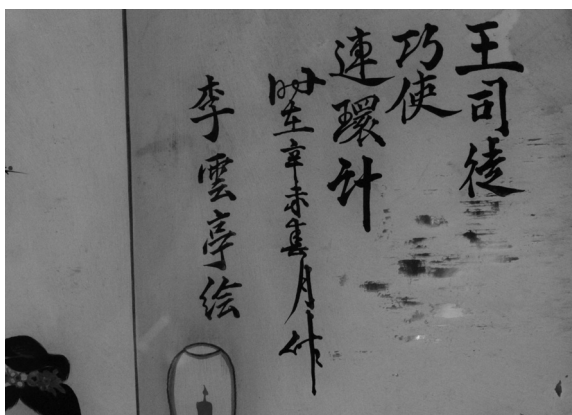 王司徒
巧使
連環计
時在辛未春月作
李雲亭绘